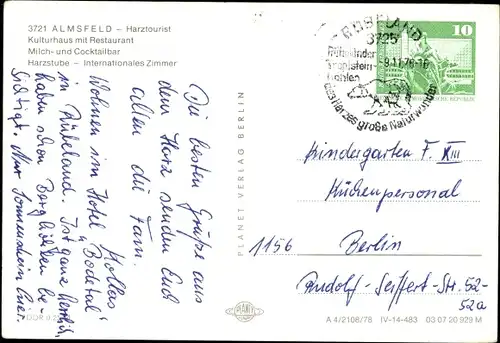 3721 ALMSFELD – Harztourist
Kulturhaus mit Restaurant
Milch- und Cocktailbar
Harzstube – Internationales Zimmer
Die besten Grüße aus
dem Harz senden Euch
allen die Fam.
Kollas
Wohnen im Hotel „Bodetal"
in Rübeland. Ist ganz herrlich,
haben schon Berg
sichtigt. Nur Sonnenschein. Euer
PLANET VERLAG BERLIN
RÜBELAND
3725
Rübeländer
Tropfstein-
höhlen
-9.11.78-16
des Harzes große Naturwunder
10
DEMOKRATISCHE REPUBLIK
Kindergarten F. XIII
Küchenpersonal
1156 Berlin
Rudolf-Seiffert-Str. 52-
52a
PLANET
A 4/2106/78 IV-14-483 03 07 20 929 M